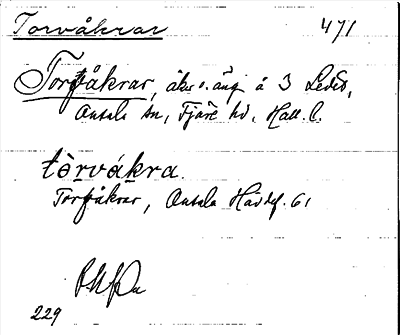 Torvåkrar 471
Torfåkrar, åker o. äng å 3 Ledet,
Onsala sn, Fjäre hd, Hall. l.
tòrvákra.
Torfåkrar, Onsala Hävdef. 61
229